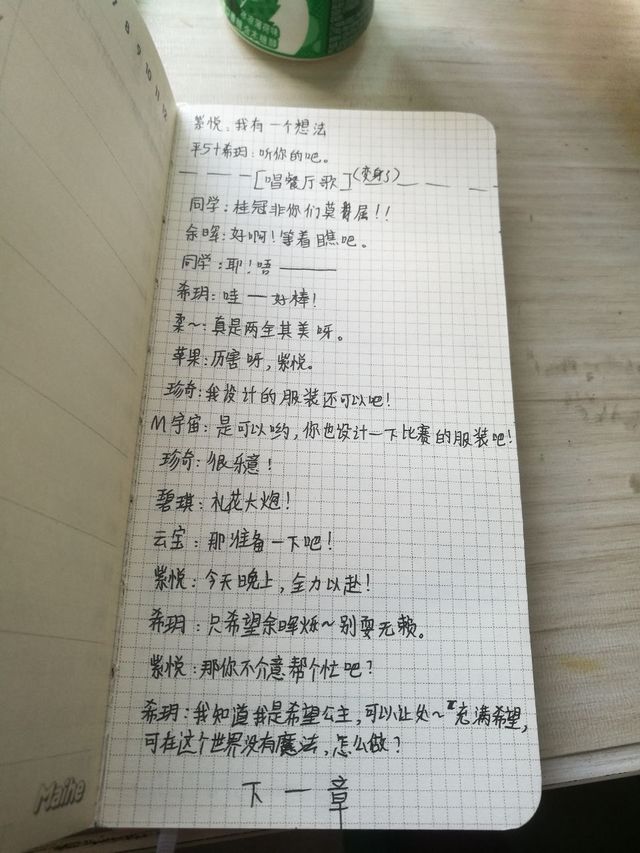 8 9 10 11 12
紫悦：我有一个想法
平行希玥：听你的吧。
———[唱餐厅歌](变身了)————
同学：桂冠非你们莫属！！
余晖：好啊！等着瞧吧。
同学：耶！唔————
希玥：哇—好棒！
柔~：真是两全其美呀。
苹果：厉害呀，紫悦。
珍奇：我设计的服装还可以吧！
M宇宙：是可以哟，你也设计一下比赛的服装吧！
珍奇：很乐意！
碧琪：礼花大炮！
云宝：那准备一下吧！
紫悦：今天晚上，全力以赴！
希玥：只希望余晖烁~别耍无赖。
紫悦：那你不介意帮个忙吧？
希玥：我知道我是希望公主，可以让处~充满希望，
可在这个世界没有魔法，怎么做？
下一章
Maihe